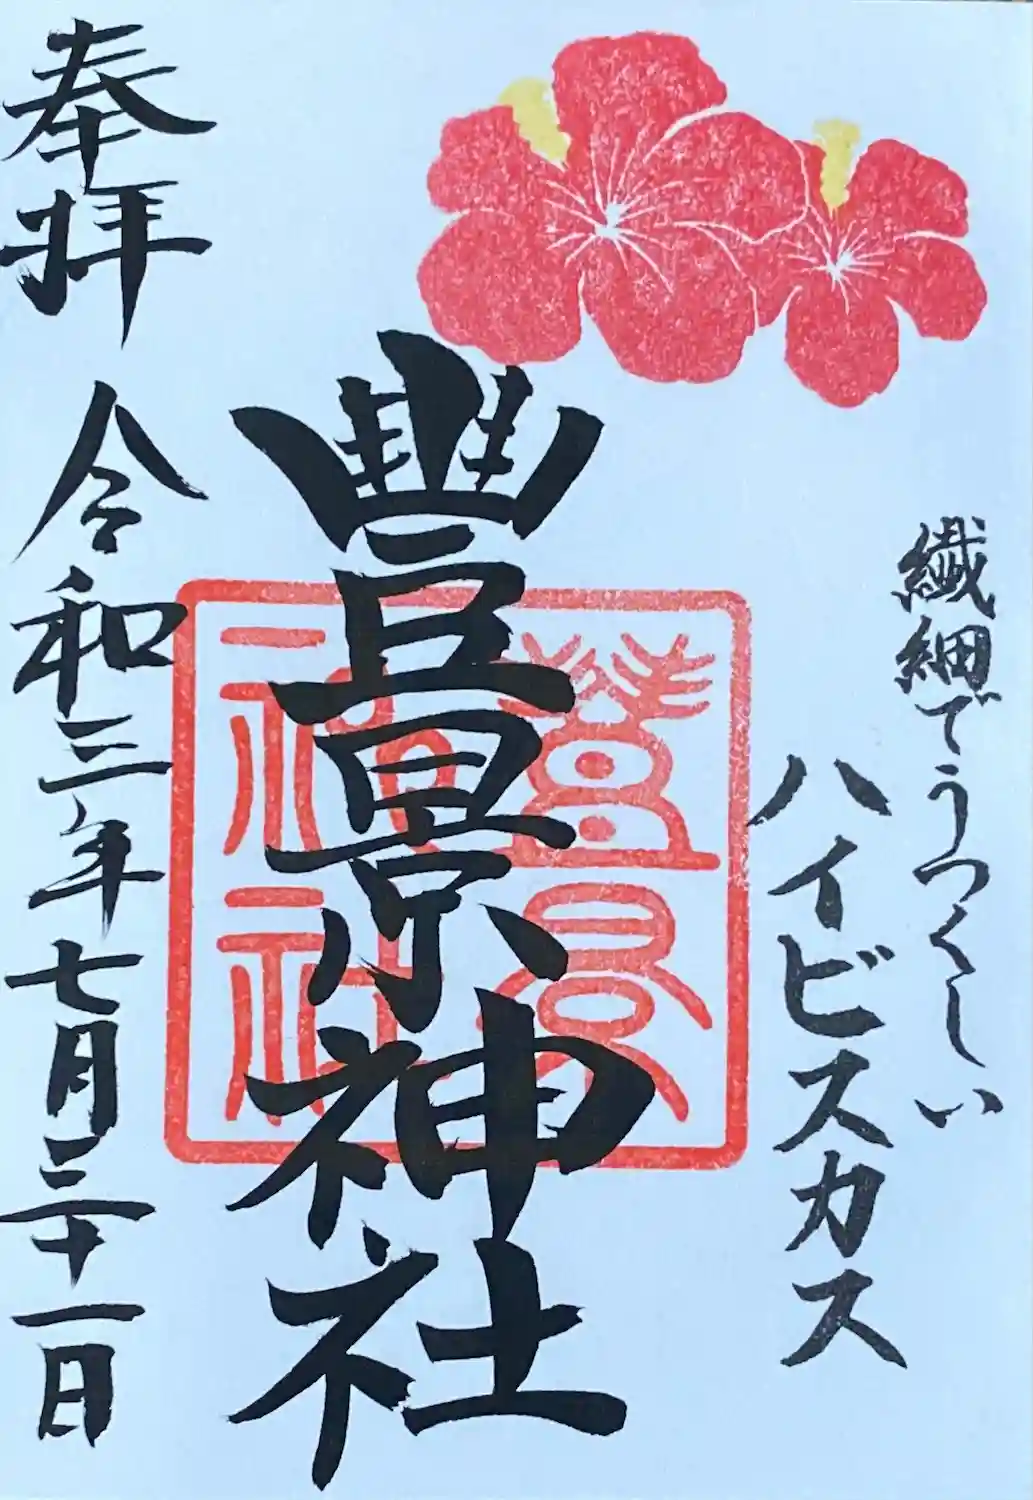 繊細でうつくしい
ハイビスカス
豐景神社
豐景
神社
奉拝 令和三年七月三十一日